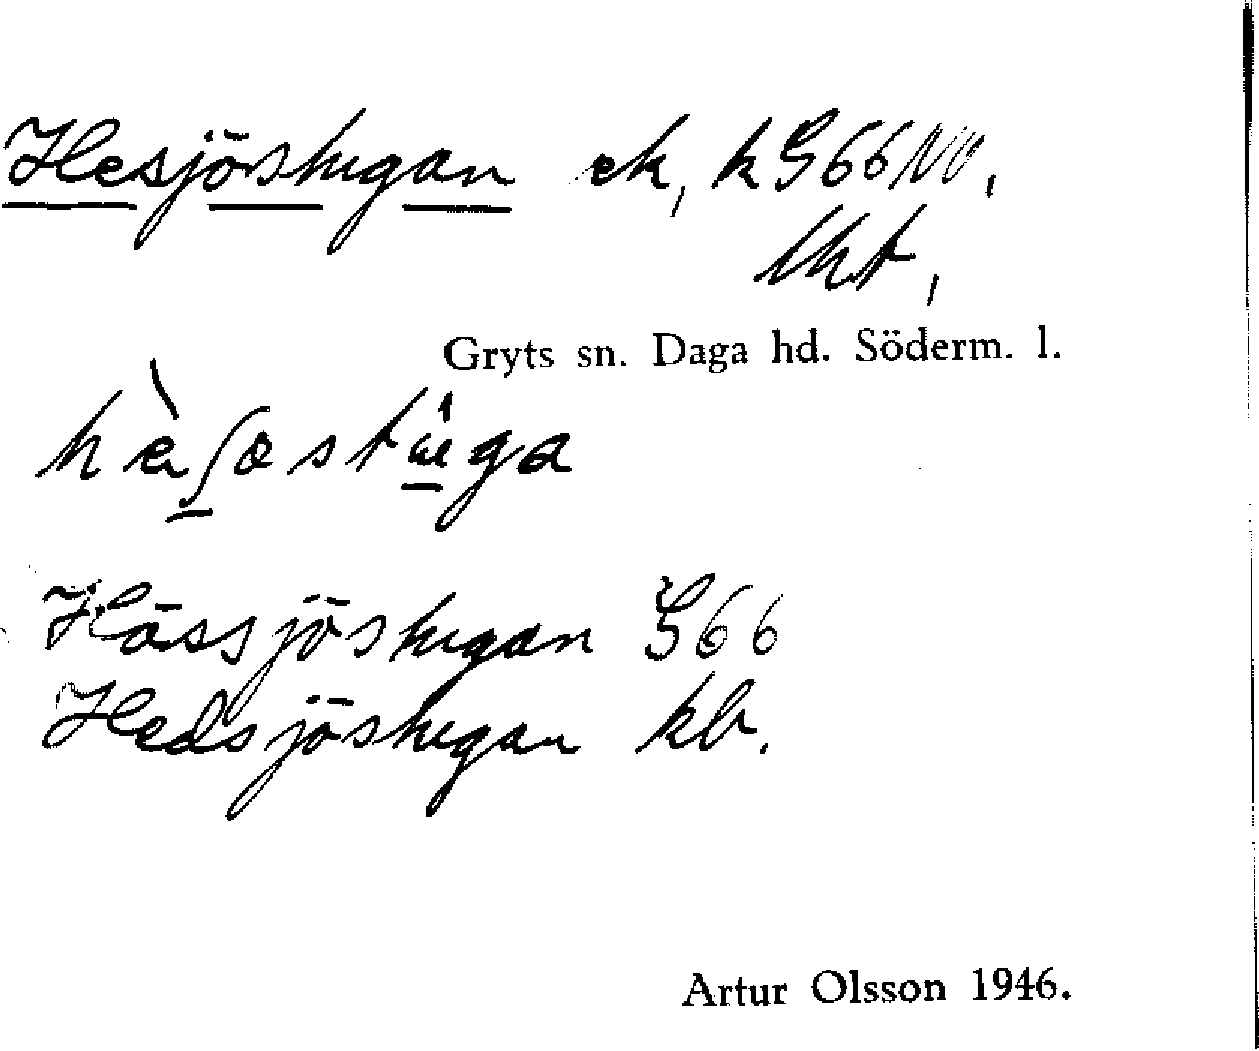 Hesjöstugan ek, k G66NV,
lht,
Gryts sn. Daga hd. Söderm. l.
Hässjöstugan G66
Hedsjöstugan kb.
Artur Olsson 1946.